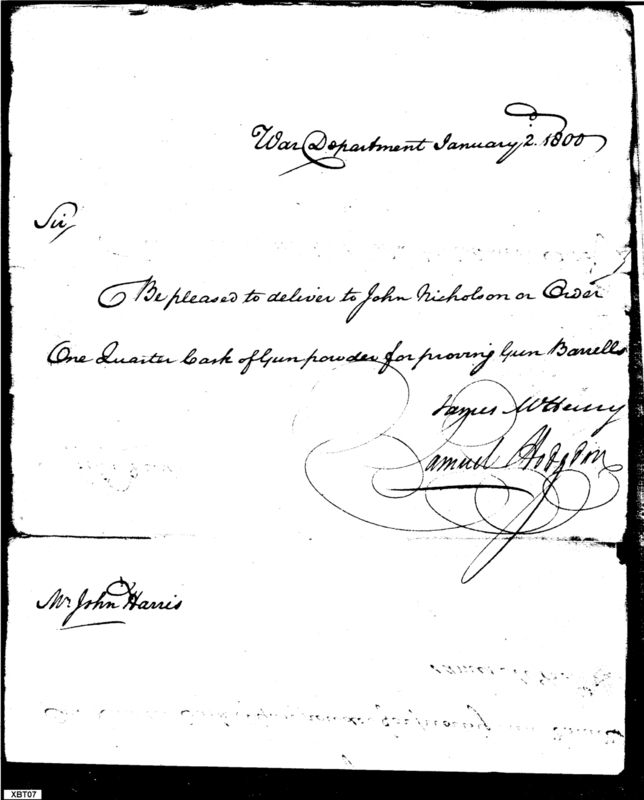 War Department January 2. 1800
Sir,
Be pleased to deliver to John Nicholson or Order
One Quarter Cask of Gunpowder for proving Gun Barrells
James McHenry
Samuel Hodgdon
Mr John Harris
XBT07